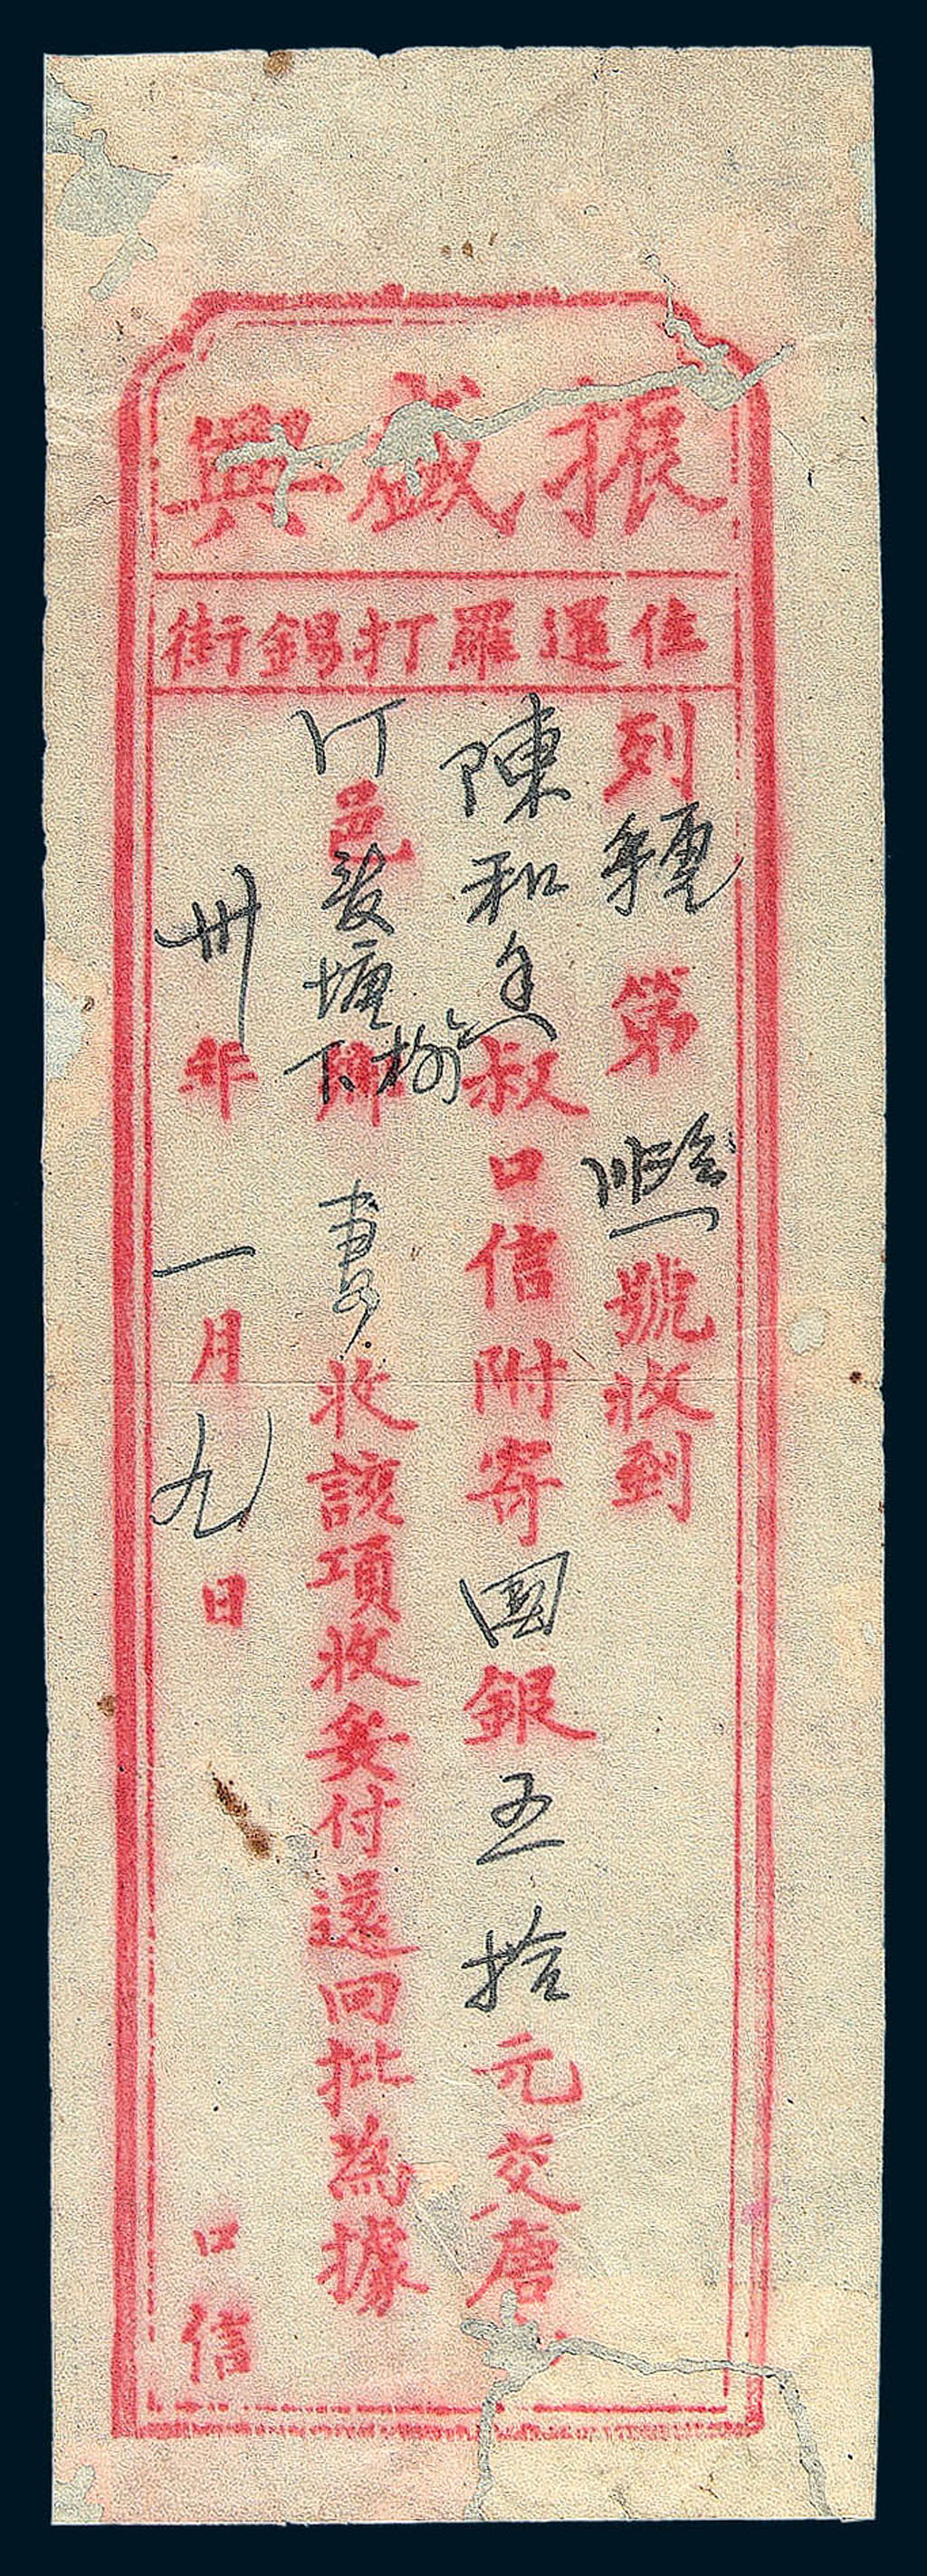 振盛興
住暹羅打錫街
列 第 號收到
陳和 叔口信附寄國銀五拾元交唐
邑 塘下 鄉 收該項收妥付送回批為據
卅年一月九日 口信